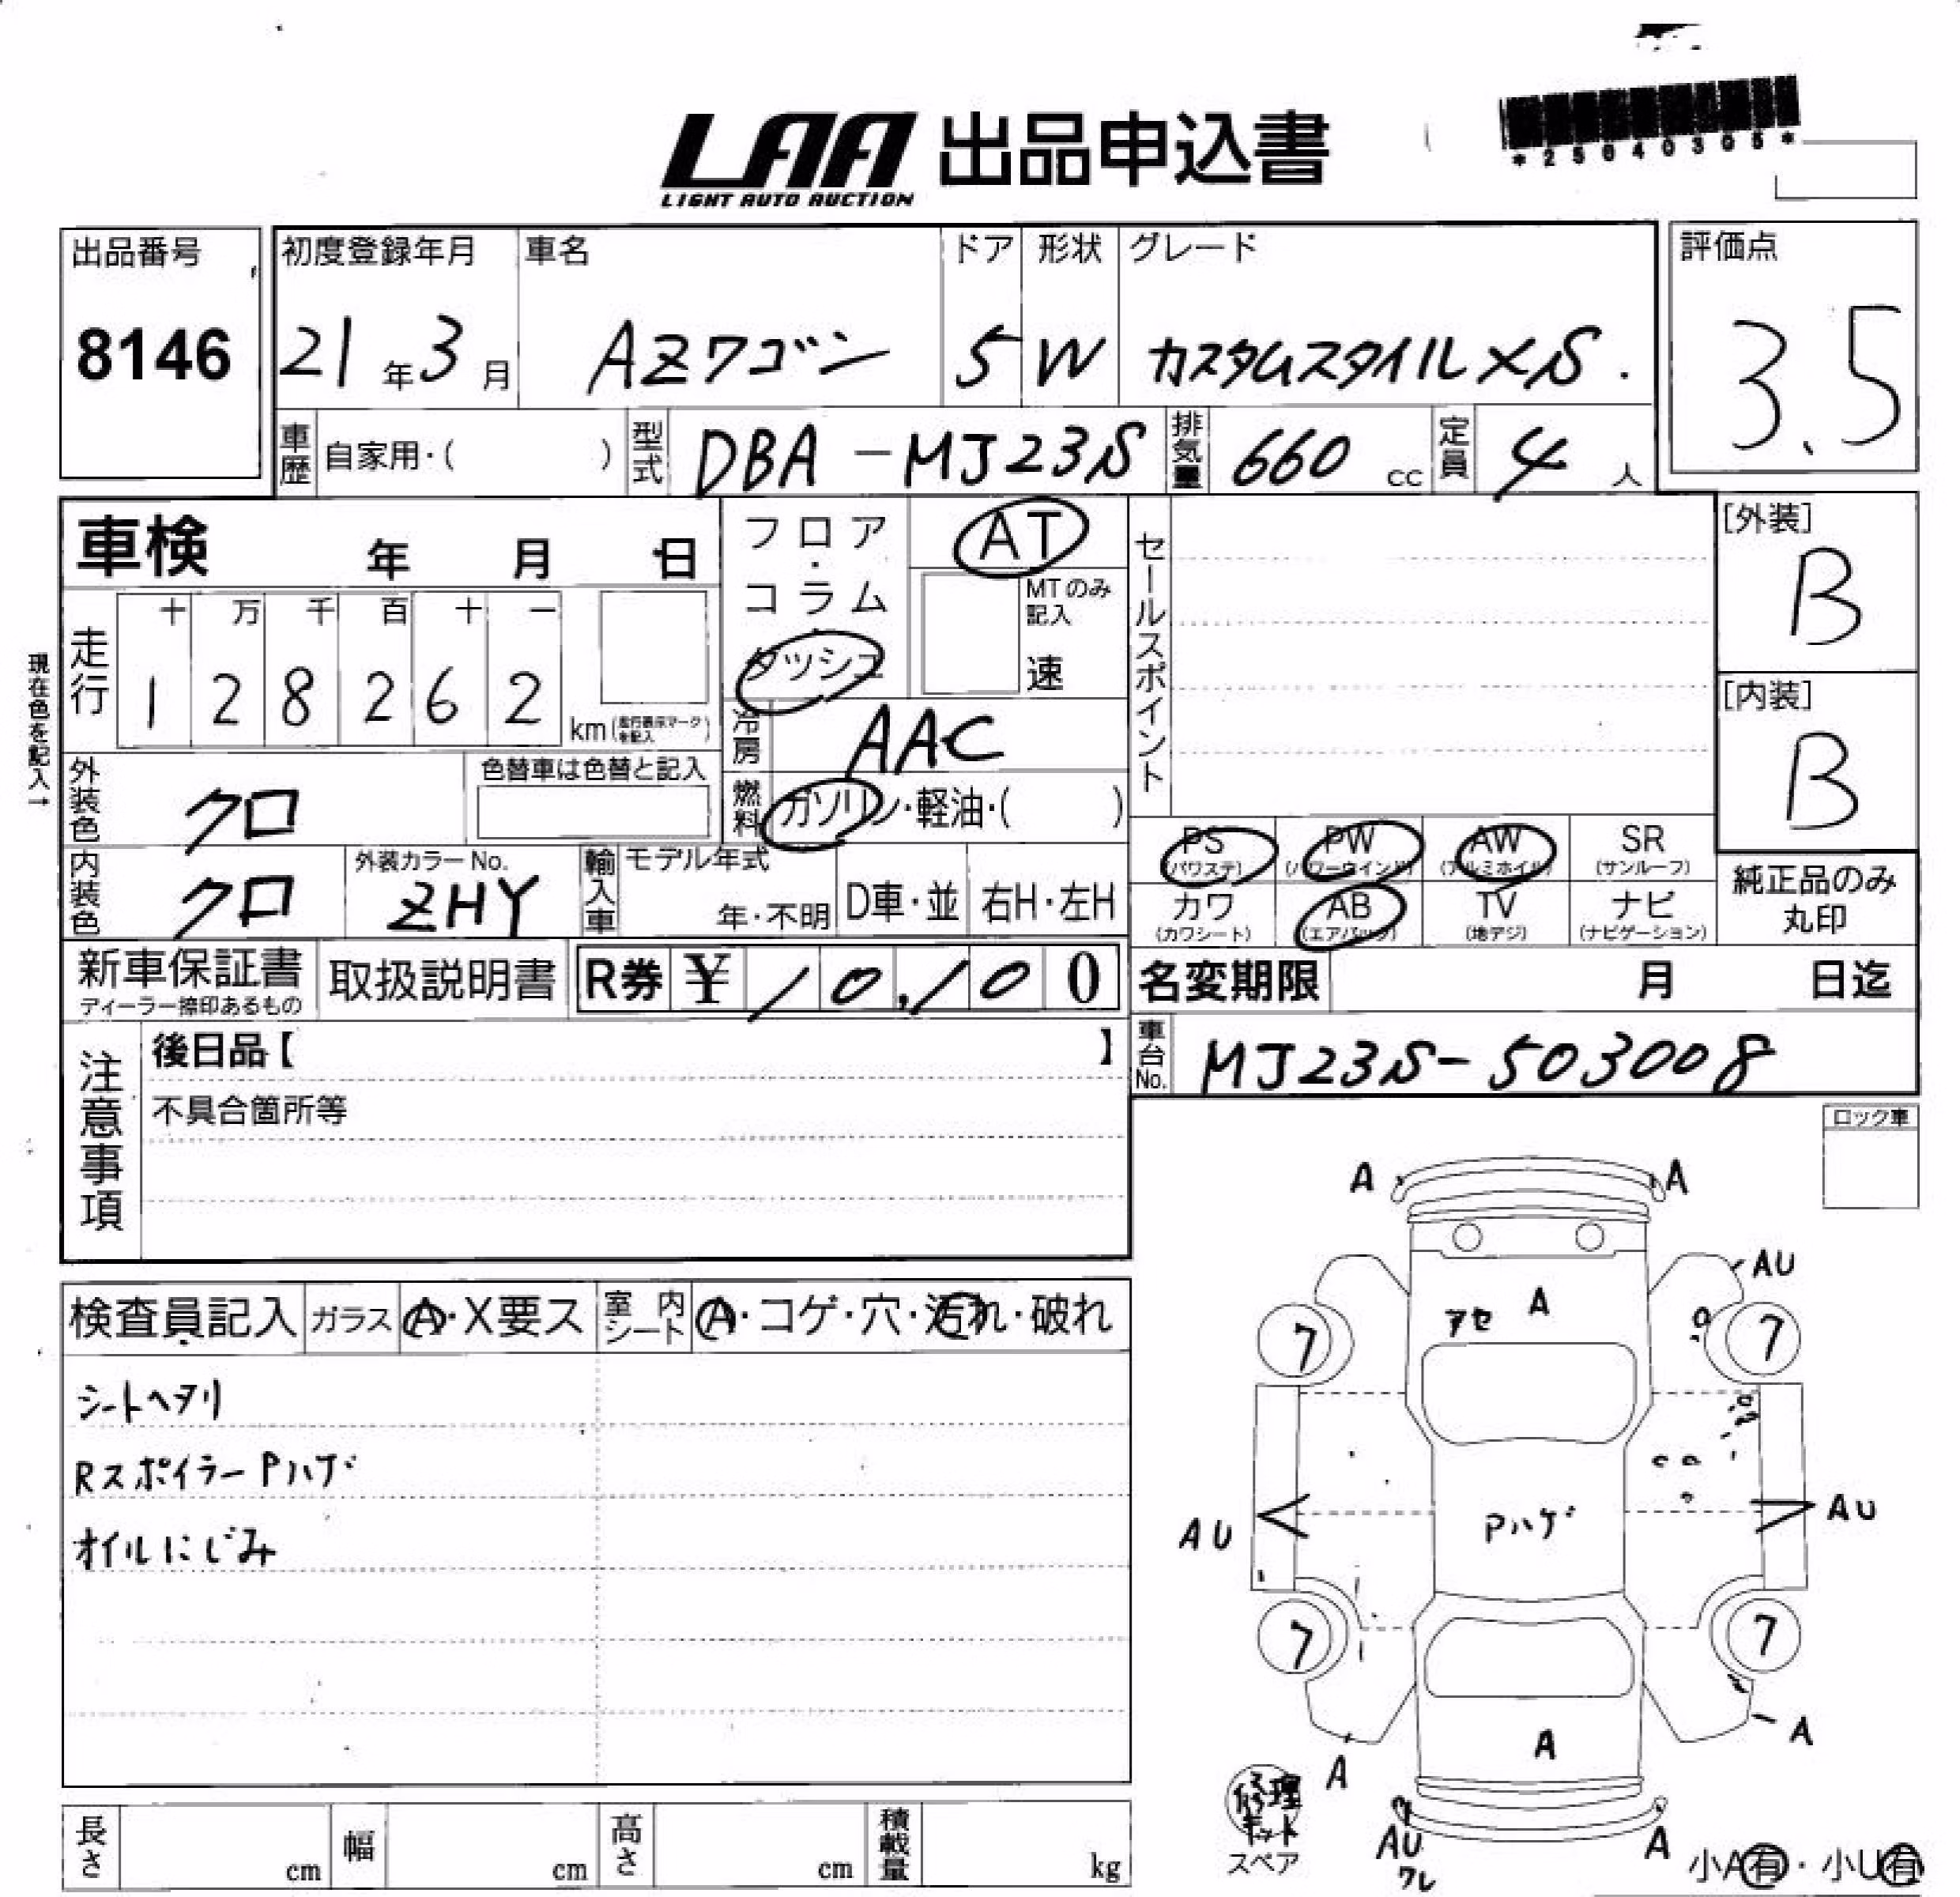 LAA 出品申込書
LIGHT AUTO AUCTION
*25040305*
出品番号
8146
初度登録年月 車名 ドア 形状 グレード
21年3月 AZワゴン 5 W カスタムスタイルXS.
評価点
3.5
車歴 自家用・( ) 型式 DBA-MJ23S 排気量 660cc 定員 4人
車検 年 月 日
フロア・コラム・ダッシュ
AT
MTのみ記入
速
セールスポイント
[外装]
B
[内装]
B
現在色を記入→
走行
十 万 千 百 十 一
1 2 8 2 6 2 km(走行表示マークを記入)
冷房 AAC
外装色 クロ 色替車は色替と記入
燃料 ガソリン・軽油・( )
内装色 クロ 外装カラーNo. ZHY
輸入車 モデル年式 年・不明 D車・並 右H・左H
PS(パワステ) PW(パワーウインド) AW(アルミホイル) SR(サンルーフ)
カワ(カワシート) AB(エアバッグ) TV(地デジ) ナビ(ナビゲーション)
純正品のみ丸印
新車保証書 ディーラー捺印あるもの
取扱説明書
R券 ¥ 10,100
名変期限 月 日迄
車台No. MJ23S-503008
注意事項
後日品【 】
不具合箇所等
ロック車
検査員記入 ガラス A・X要ス 室内シート A・コゲ・穴・汚れ・破れ
シートヘタリ
RスポイラーPハゲ
オイルにじみ
A A
AU
アセ A
7 7
AU Pハゲ AU
7 7
A A A
修理キット
スペア
AU
ワレ
A
小A有・小U有
長さ cm 幅 cm 高さ cm 積載量 kg